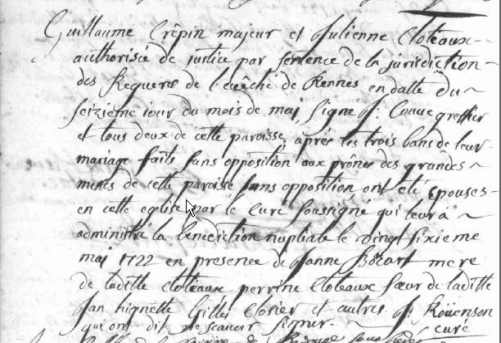 Guillaume Crêpin majeur et Julienne Cloteaux
authorisée de justice par sentence de la jurisdiction
des Requeres de l'evêché de Rennes en datte du
seizieme jour du mois de maj signé J. greffier
et tous deux de cette paroisse, après les trois bans de leur
mariage faits sans opposition aux prônes des grandes
messes de cette paroisse sans opposition ont été épousés
en cette eglise par le Curé soussigné qui leur a
administré la benediction nuptiale le vingt sixieme
maj 1722 en presence de Janne mere
de laditte Cloteaux perrine Cloteaux sœur de laditte
Jan Gilles et autres J. Roüenson
qui ont dit ne scavoir signer. curé